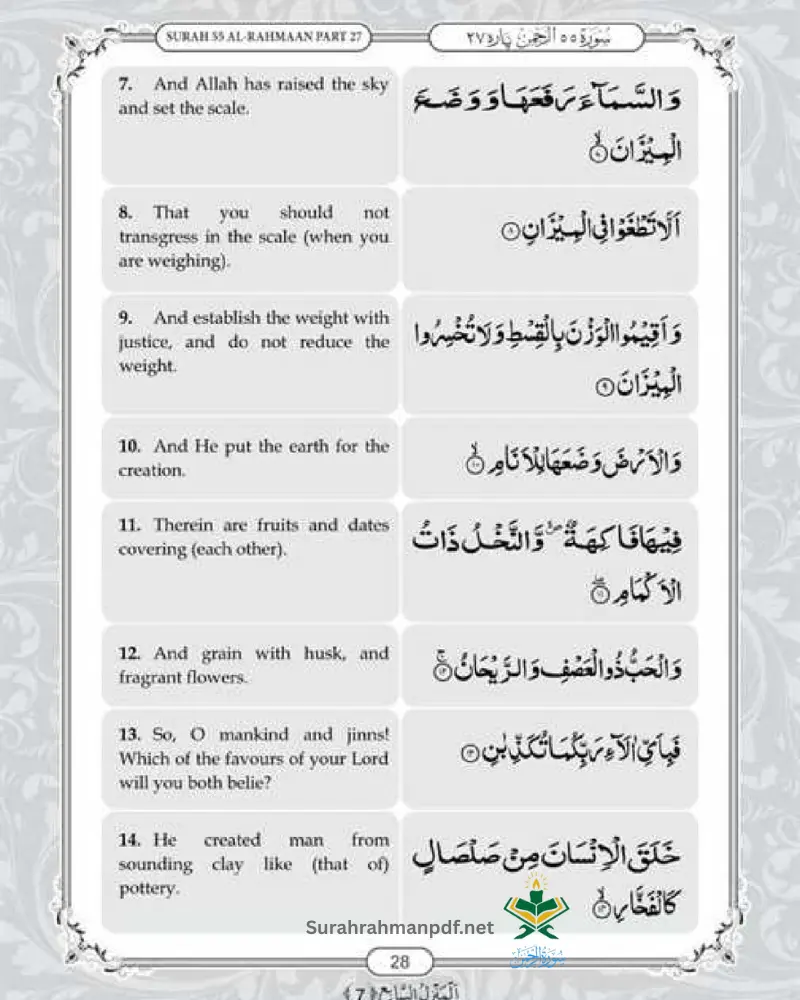 SURAH 55 AL-RAHMAAN PART 27
سُورَة ٥٥ اَلرَّحْمٰن پاره ٢٧
7. And Allah has raised the sky
and set the scale.
وَالسَّمَآءَ رَفَعَهَا وَوَضَعَ
الْمِيْزَانَ ۙ ٧
8. That you should not
transgress in the scale (when you
are weighing).
اَلَّا تَطْغَوْا فِى الْمِيْزَانِ ٨
9. And establish the weight with
justice, and do not reduce the
weight.
وَاَقِيْمُوا الْوَزْنَ بِالْقِسْطِ وَلَا تُخْسِرُوا
الْمِيْزَانَ ٩
10. And He put the earth for the
creation.
وَالْاَرْضَ وَضَعَهَا لِلْاَنَامِ ۙ ١٠
11. Therein are fruits and dates
covering (each other).
فِيْهَا فَاكِهَةٌ ۪ۙ وَّالنَّخْلُ ذَاتُ
الْاَكْمَامِ ۖ ١١
12. And grain with husk, and
fragrant flowers.
وَالْحَبُّ ذُو الْعَصْفِ وَالرَّيْحَانُ ۚ ١٢
13. So, O mankind and jinns!
Which of the favours of your Lord
will you both belie?
فَبِاَىِّ اٰلَآءِ رَبِّكُمَا تُكَذِّبٰنِ ١٣
14. He created man from
sounding clay like (that of)
pottery.
خَلَقَ الْاِنْسَانَ مِنْ صَلْصَالٍ
كَالْفَخَّارِ ۙ ١٤
Surahrahmanpdf.net
سورة الرحمن
28
اَلْمَنْزِلُ السَّابِعُ ﴿7﴾